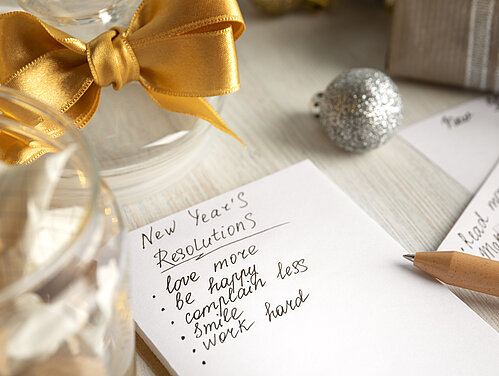 New Year's
Resolutions
• love more
• be happy
• complain less
• smile
• work hard
•
New
Read mo